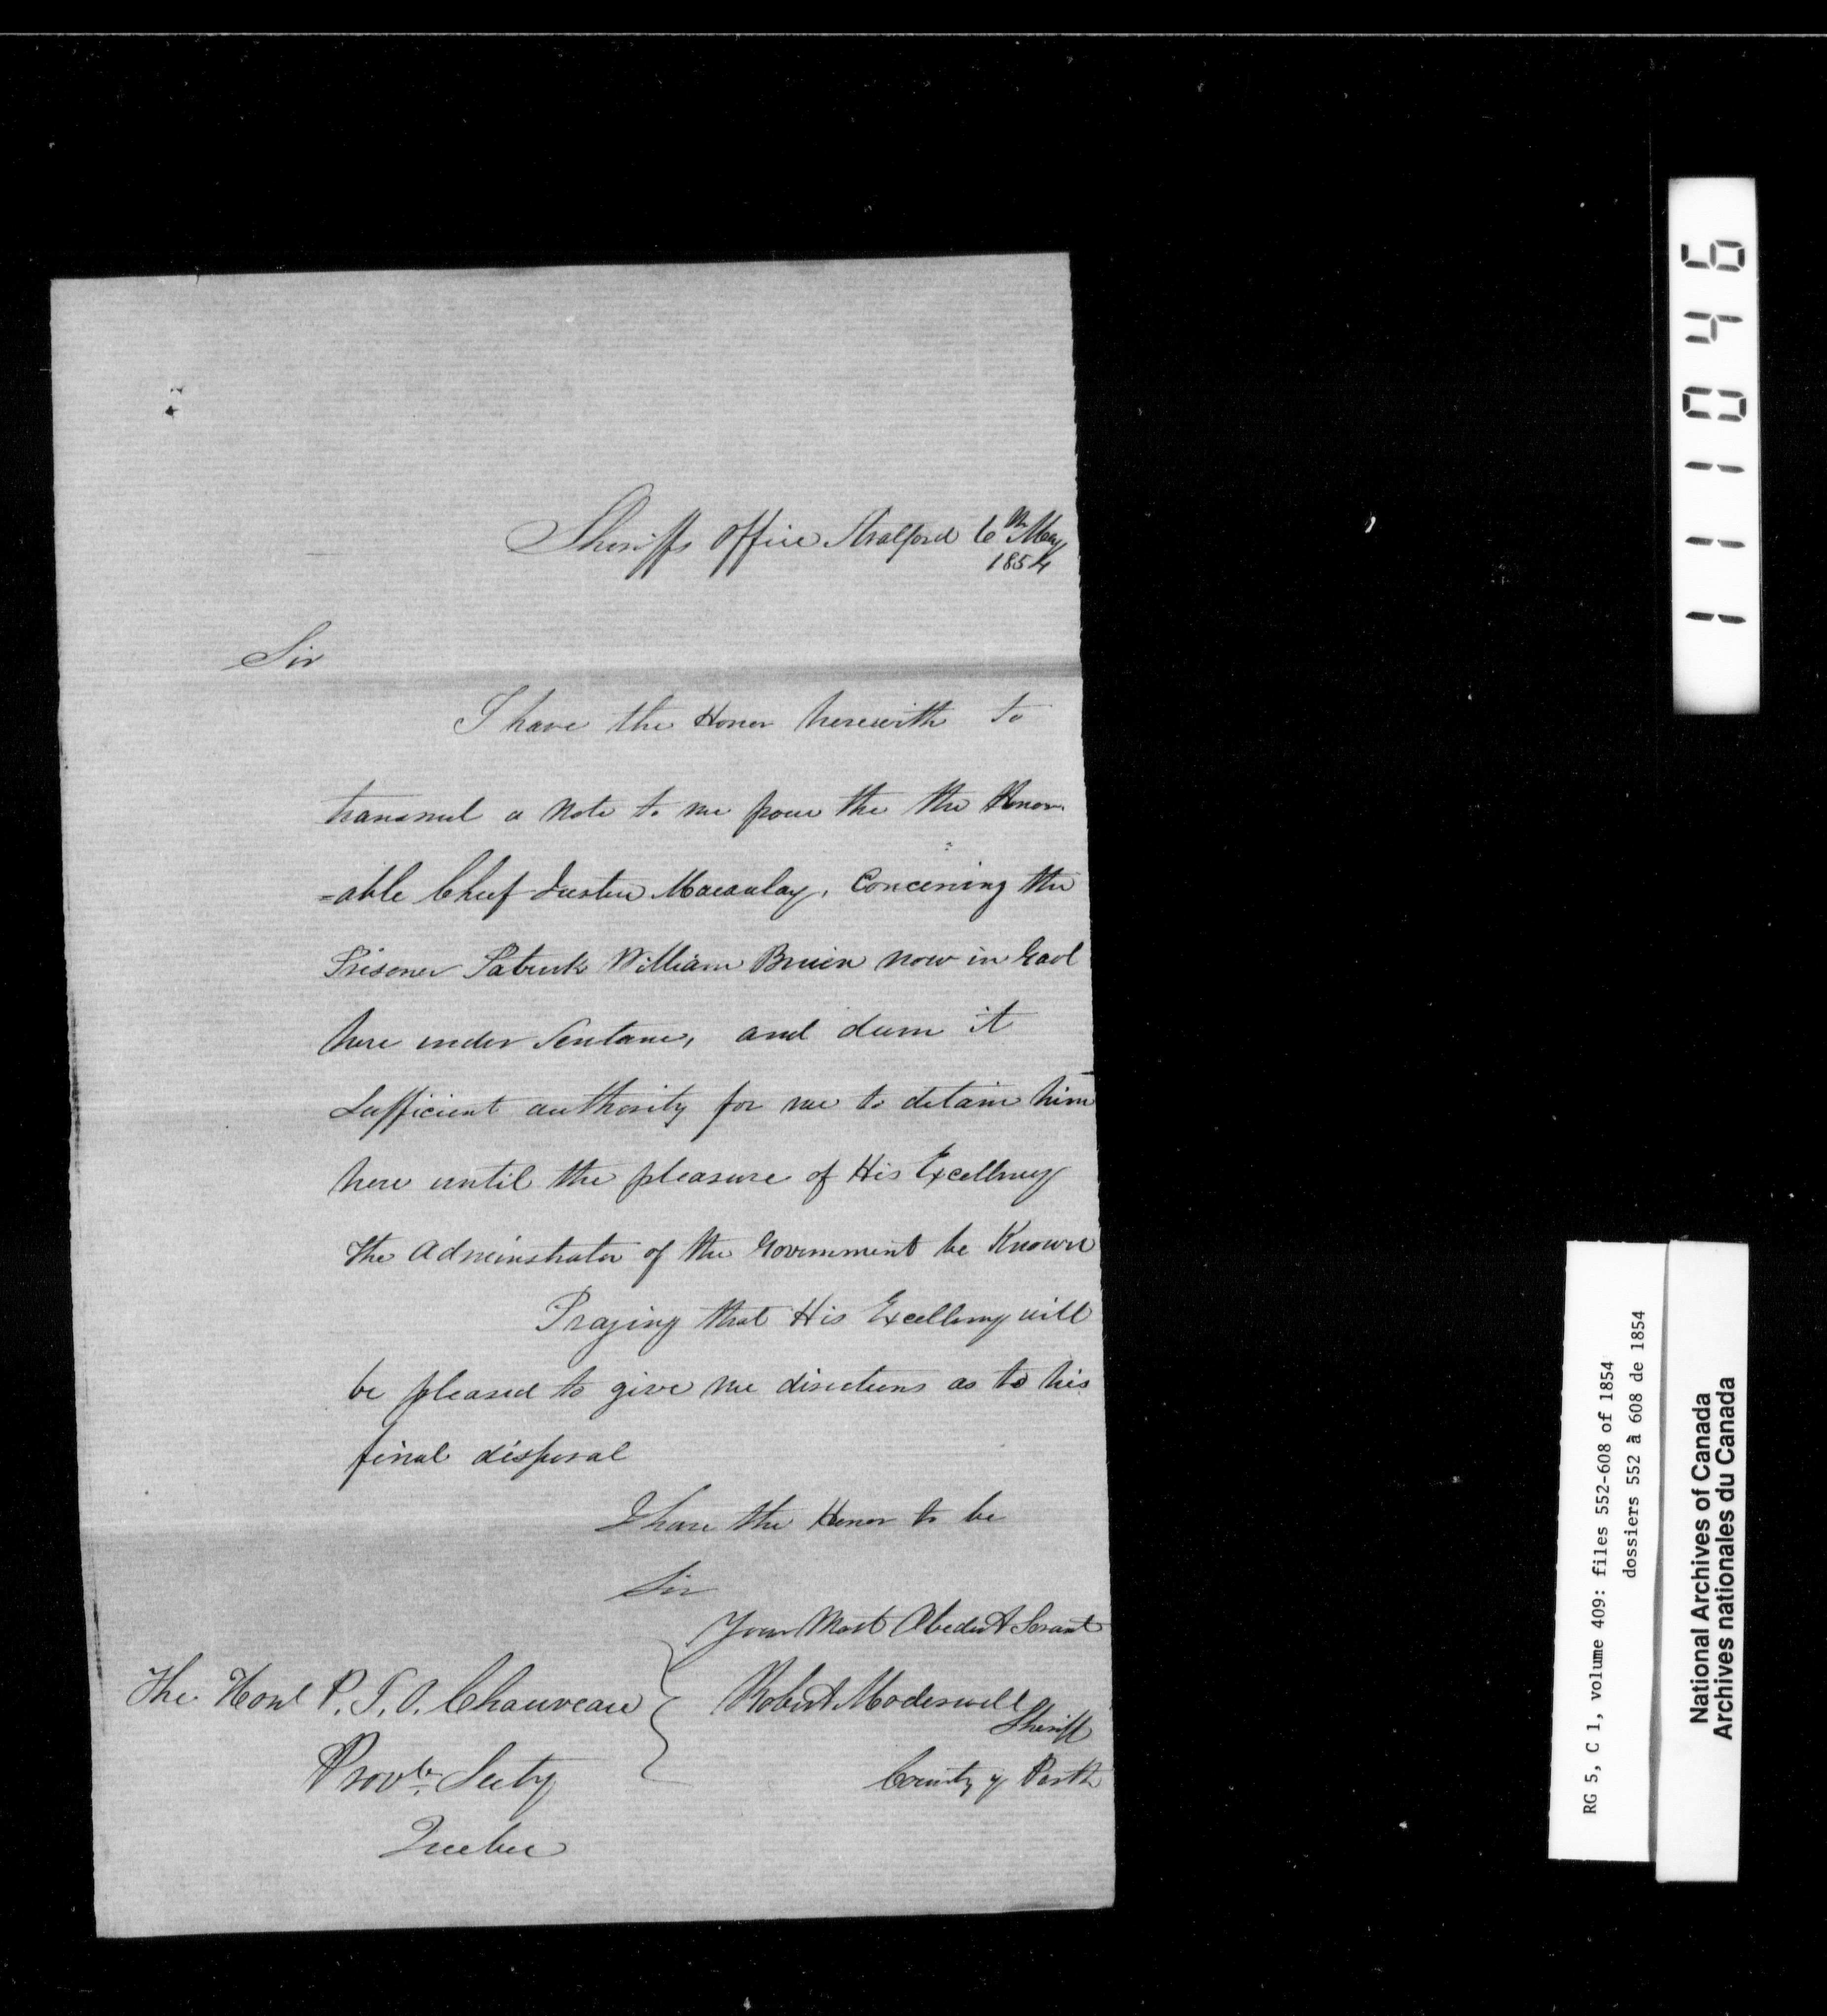 Sheriffs Office Stratford 6th May
1854
Sir
I have the Honor herewith to
transmit a Note to me from the the Honor
=able Chief Justice Macaulay, Concerning the
Prisoner Patrick William Bruin now in Gaol
here under Sentance, and deem it
Sufficient authority for me to detain him
here until the pleasure of His Excellency
the Administrator of the Government be Known
Praying that His Excellency will
be pleased to give me directions as to his
final disposal
I have the Honor to be
Sir
Your Most Obedient Servant
Robert Moderwell
Sheriff
County of Perth
The Honl P. J. O. Chauveau
Provl. Secty
Quebec
1 1 1 1 0 4 6
RG 5, C 1, volume 409: files 552-608 of 1854
dossiers 552 à 608 de 1854
National Archives of Canada
Archives nationales du Canada